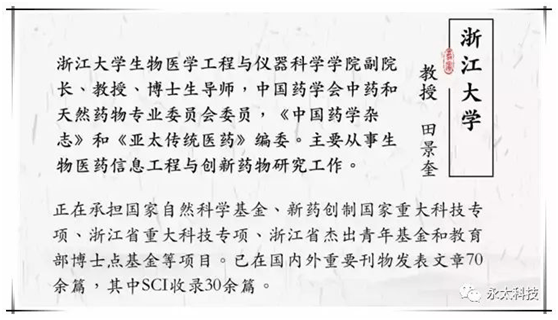 浙江大学
教授 田景奎
浙江大学生物医学工程与仪器科学学院副院
长、教授、博士生导师，中国药学会中药和
天然药物专业委员会委员，《中国药学杂
志》和《亚太传统医药》编委。主要从事生
物医药信息工程与创新药物研究工作。
正在承担国家自然科学基金、新药创制国家重大科技专
项、浙江省重大科技专项、浙江省杰出青年基金和教育
部博士点基金等项目。已在国内外重要刊物发表文章70
余篇，其中SCI收录30余篇。
永太科技